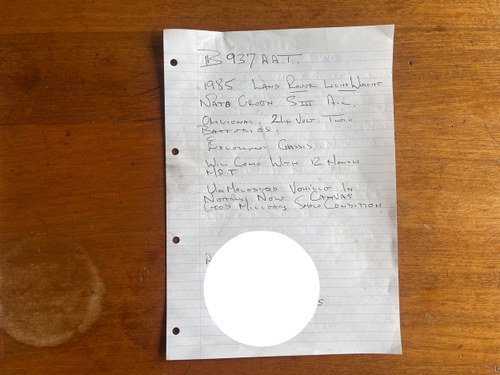 B937 AAT.
1985 LAND ROVER LIGHTWEIGHT
NATO GREEN. SIII A.C.
ORIGIONAL, 24 VOLT, TWIN
BATTERIES.
EXCELLENT CHASSIS.
WILL COME WITH 12 MONTH
M.O.T.
UNMOLESTED VEHICLE IN
NEARLY NEW CANVAS
GOOD MILITARY SHOW CONDITION.